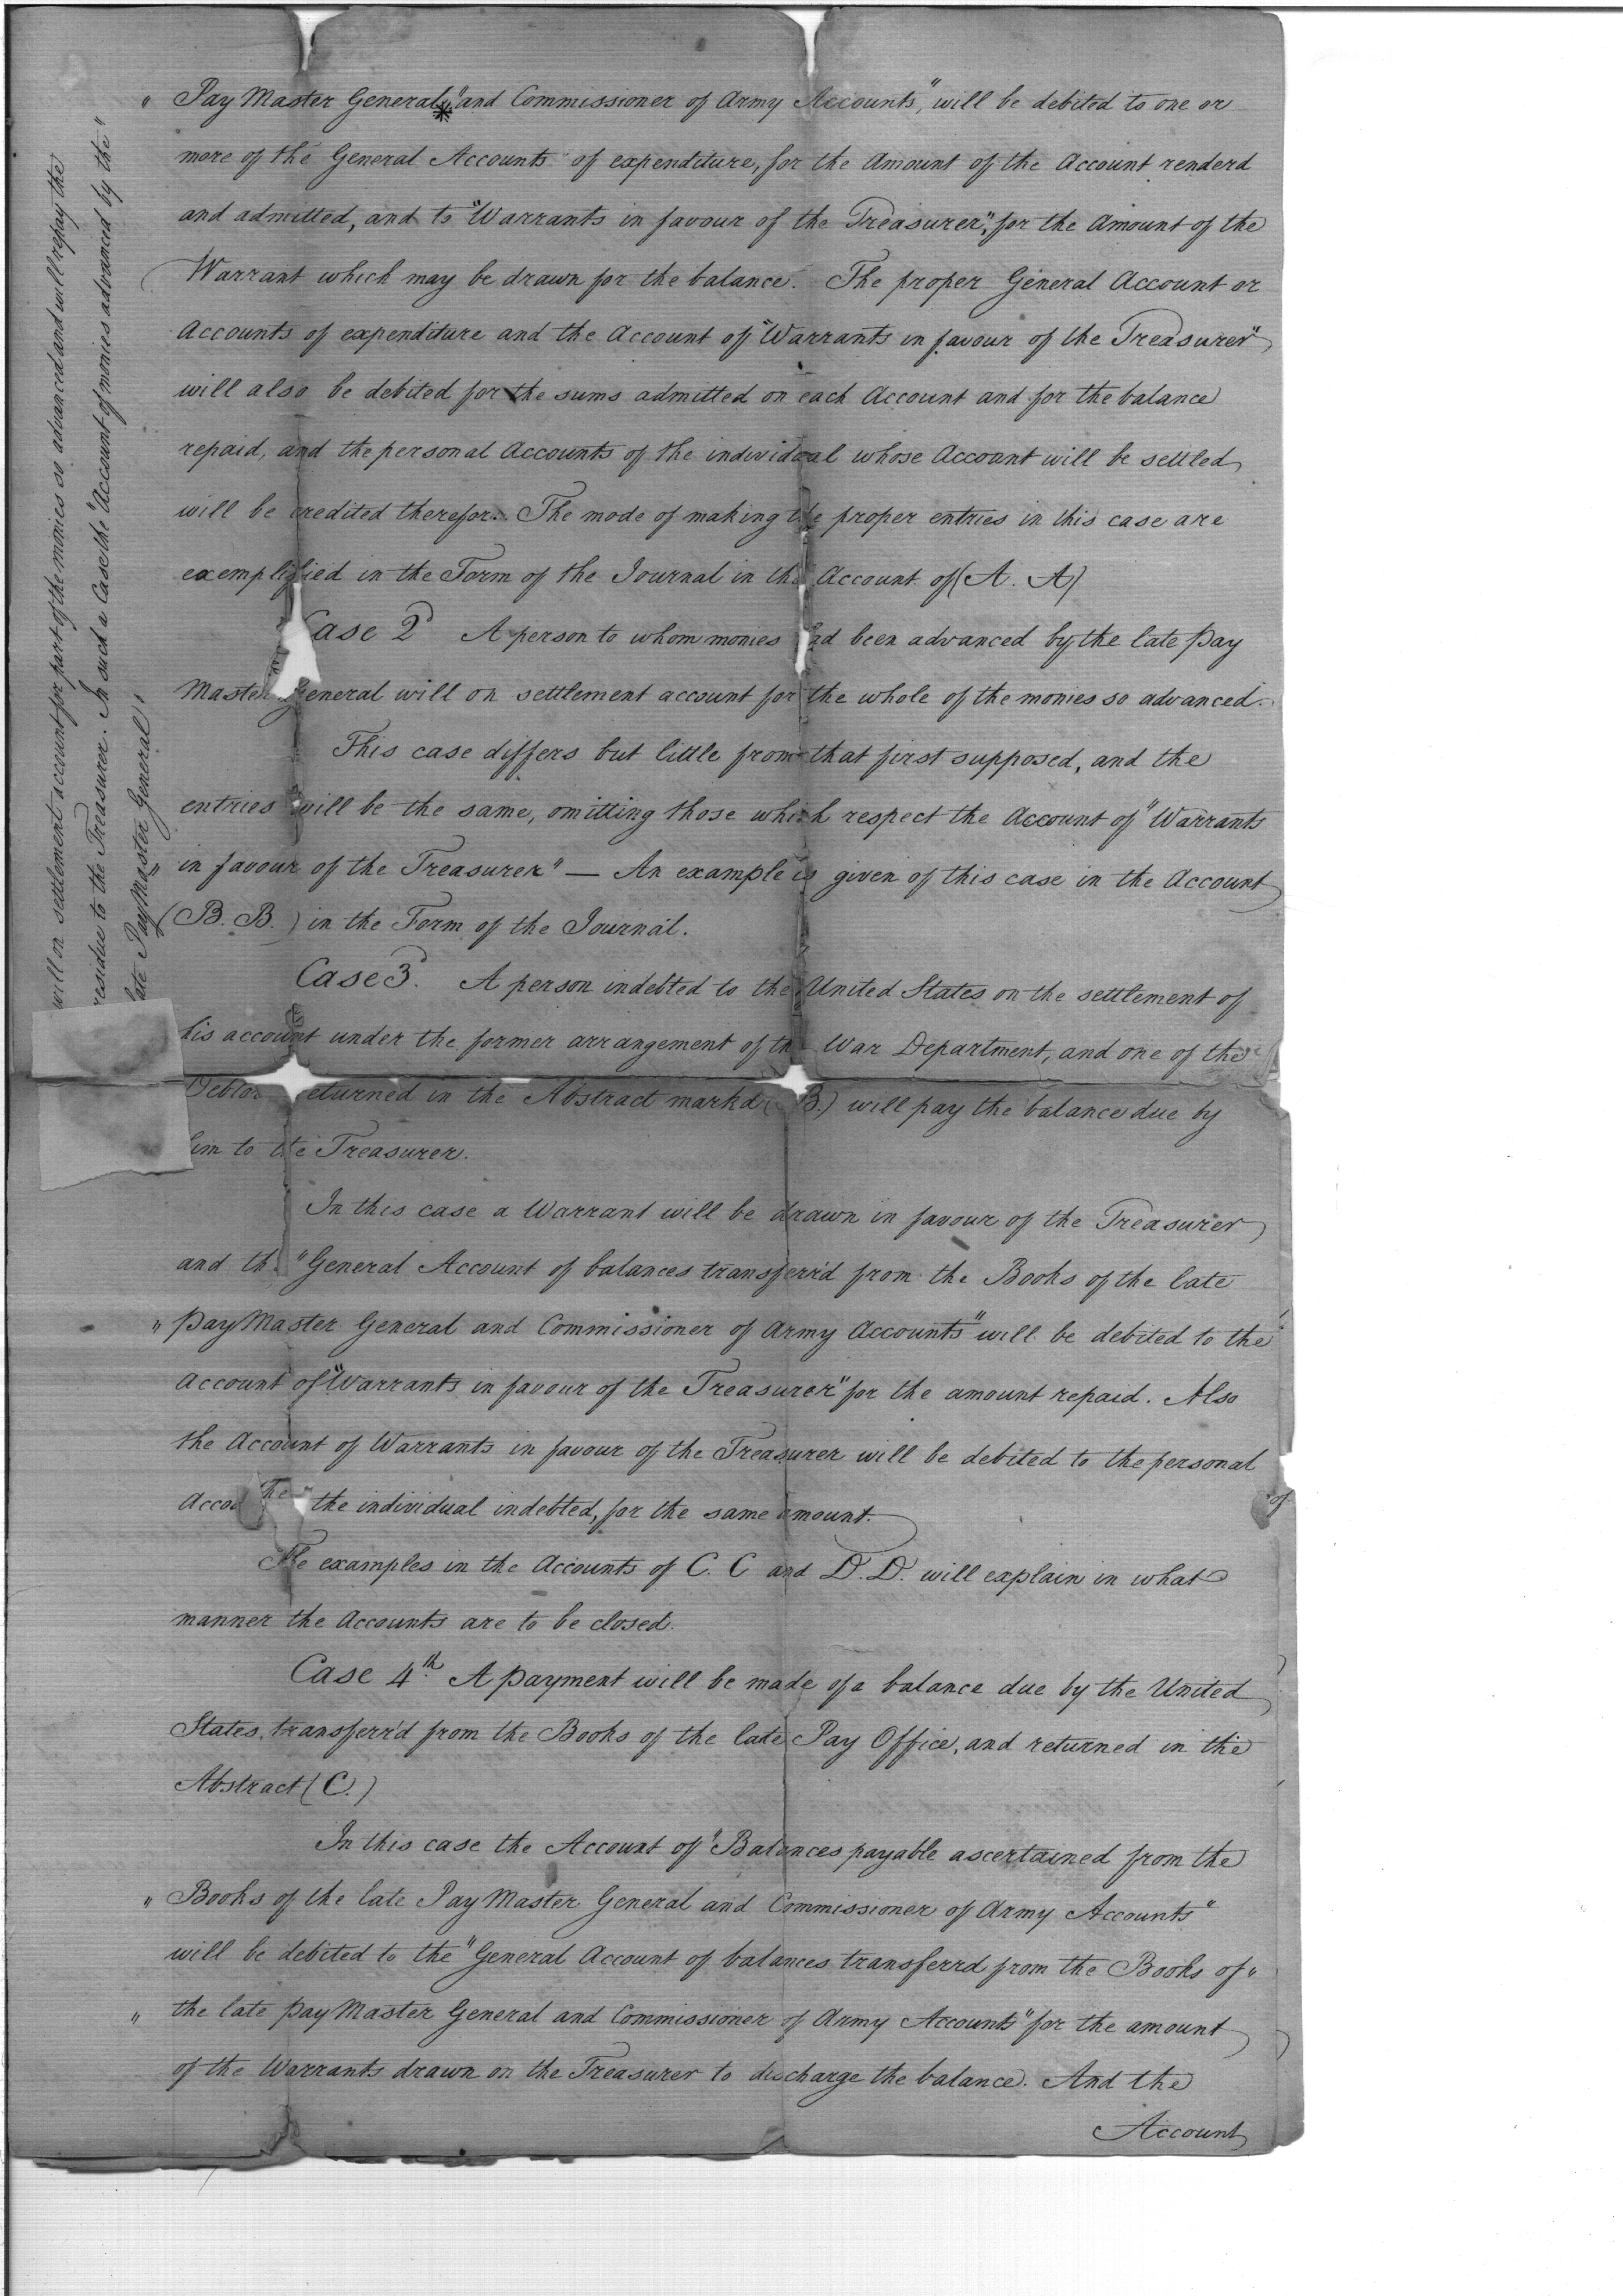 " Pay Master General," and Commissioner of Army Accounts," will be debited to one or
more of the General Accounts of expenditure, for the Amount of the Account renderd
and admitted, and to "Warrants in favour of the Treasurer", for the Amount of the
Warrant which may be drawn for the balance. The proper General Account or
Accounts of expenditure and the Account of "Warrants in favour of the Treasurer"
will also be debited for the sums admitted on each Account and for the balance
repaid, and the personal Accounts of the individual whose Account will be settled
will be credited therefor. The mode of making the proper entries in this case are
exemplified in the Form of the Journal in the Account of (A. A)
Case 2d A person to whom monies had been advanced by the late Pay
Master General will on settlement account for the whole of the monies so advanced.
This case differs but little from that first supposed, and the
entries will be the same, omitting those which respect the Account of "Warrants
" in favour of the Treasurer" — An example is given of this case in the Account
of (B. B.) in the Form of the Journal.
Case 3d. A person indebted to the United States on the settlement of
his account under the former arrangement of the War Department, and one of the
Debtors returned in the Abstract markd (B.) will pay the balance due by
him to the Treasurer.
In this case a Warrant will be drawn in favour of the Treasurer
and the "General Account of balances transferr'd from the Books of the late
" Pay Master General and Commissioner of Army Accounts" will be debited to the
Account of "Warrants in favour of the Treasurer" for the amount repaid. Also
the Account of Warrants in favour of the Treasurer will be debited to the personal
Accou the individual indebted, for the same amount.
The examples in the Accounts of C. C and D. D. will explain in what
manner the Accounts are to be closed.
Case 4th. A payment will be made of a balance due by the United
States, transferr'd from the Books of the late Pay Office, and returned in the
Abstract (C.)
In this case the Account of "Balances payable ascertained from the
" Books of the late Pay Master General and Commissioner of Army Accounts"
will be debited to the "General Account of balances transferrd from the Books of "
" the late Pay Master General and Commissioner of Army Accounts" for the amount
of the Warrants drawn on the Treasurer to discharge the balance. And the
Account
will on settlement account for part of the monies so advanced and will repay the
residue to the Treasurer. In such a Case the "Account of monies advanced by the"
late Pay Master General,